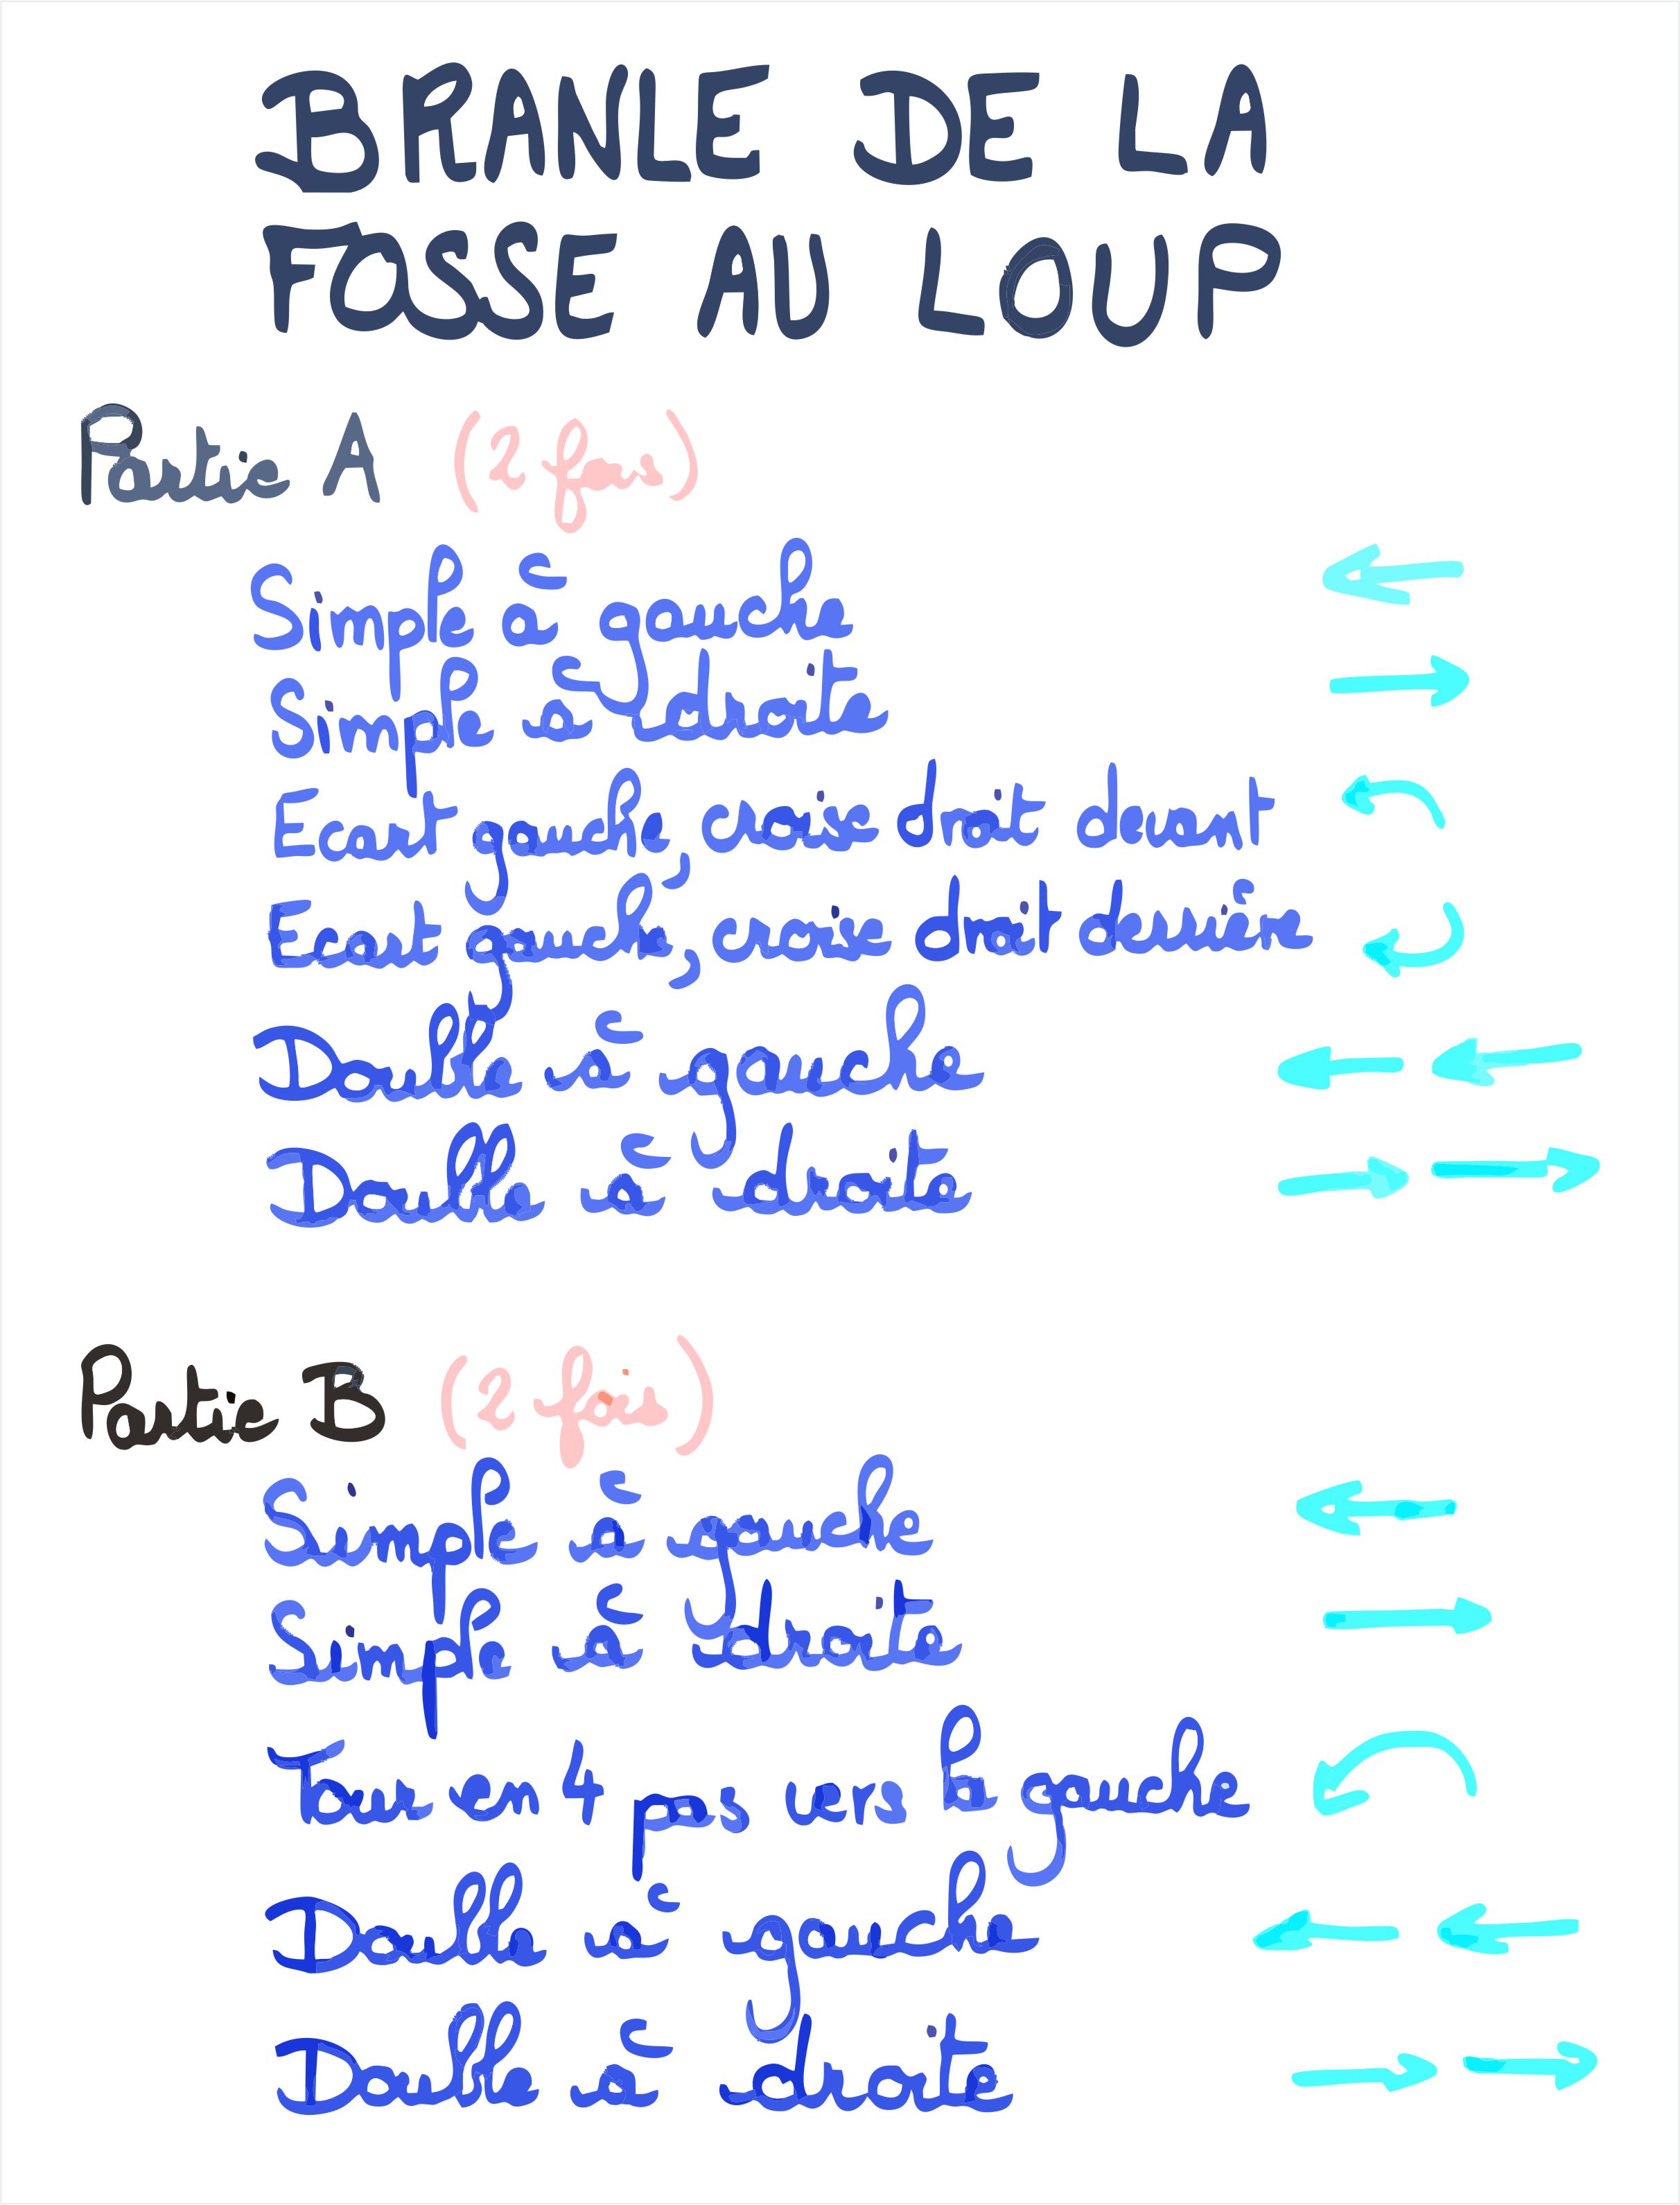 BRANLE DE LA
FOSSE AU LOUP
Partie A (2 fois)
Simple à gauche
Simple à droite
Ecart gauche, croisé droit devant
Ecart gauche, croisé droit derrière
Double à gauche
Double à droite
Partie B (2 fois)
Simple à gauche
Simple à droite
Tour en 4 pas vers la gauche
Double à gauche
Double à droite